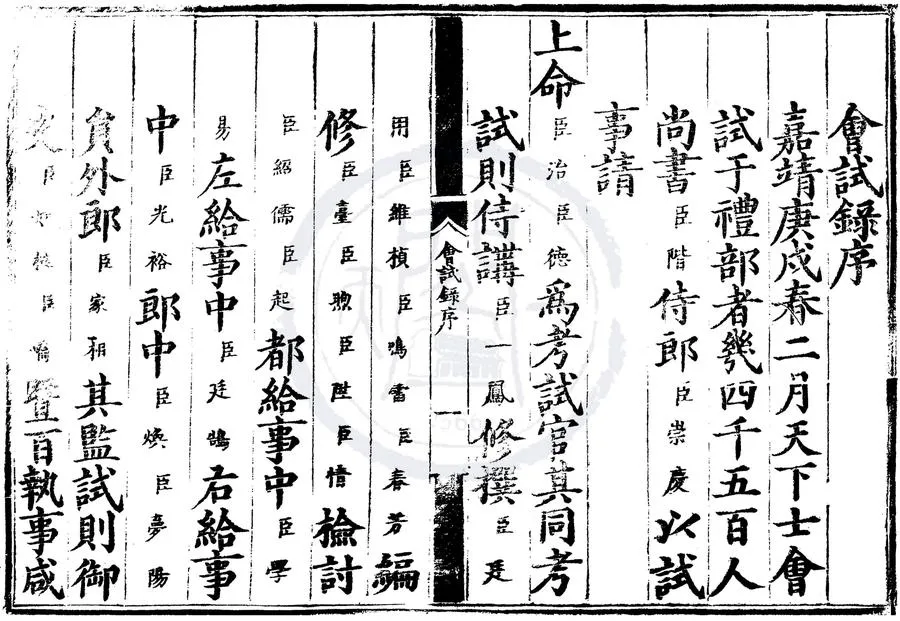 會試錄序
嘉靖庚戌春二月天下士會
試于禮部者幾四千五百人
尚書臣階侍郎臣崇慶以試
事請
上命臣治臣德為考試官其同考
試則侍講臣一鳳修撰臣廷
會試錄序 一
用臣維楨臣鳴雷臣春芳編
修臣臺臣煦臣陞臣惜檢討
臣紹儒臣起都給事中臣學
易左給事中臣廷鵠右給事
中臣光裕郎中臣煥臣夢陽
員外郎臣家相其監試則御
史臣臣暨百執事咸